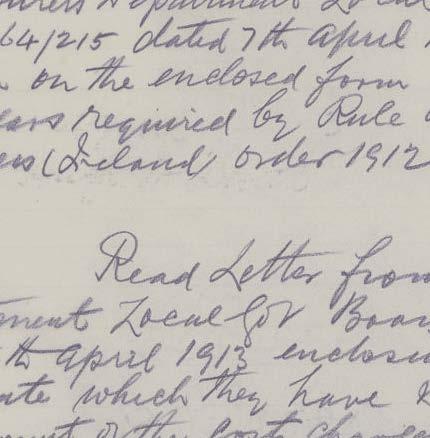 Department Local
64/215 dated 7th April
on the enclosed form
required by Rule
(Ireland order 1912
Read Letter from
Local Gov Boar
th April 1913 enclosi
which they have
the costs